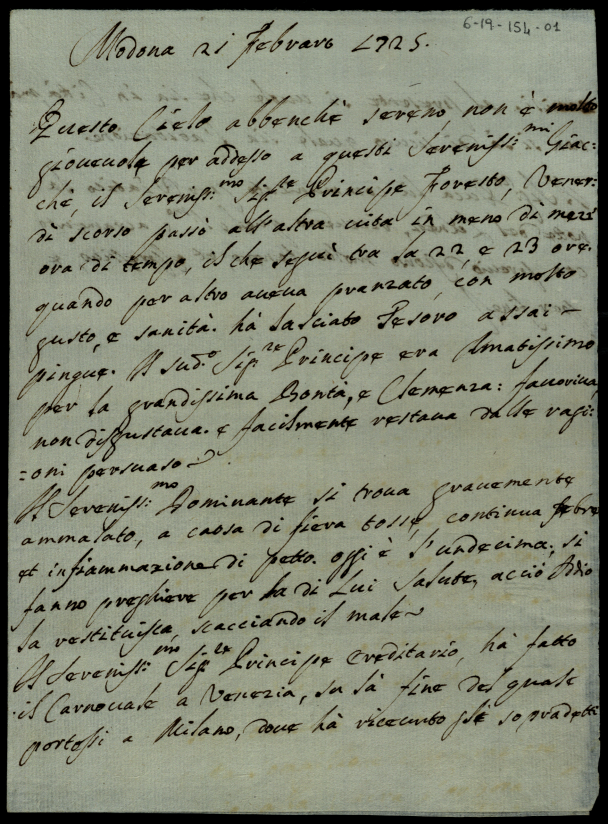 6-19-154-01
Modona 21 Febraro 1725.
Questo Cielo abbenchè sereno, non è molto
gioueuole per addesso a questi Serenissi:mi Giac:
chè, il Sereniss:mo Sig:re Principe Foresto, Vener:
dì scorso passò all'altra uita in meno di mezz'
ora di tempo, il che seguì tra la 22, e 23 ore.
quando per altro aueua pranzato, con molto
gusto, e sanità. hà lasciato Tesoro assai
pingue. Il sud.o Sig.re Principe era Amatissimo
per la grandissima Bontà, e Clemenza: fauoriua,
non disgustaua. e facilmente restaua dalle ragi:
=oni persuaso
Il Sereniss:mo Dominante si troua grauemente
ammalato, a caosa di fiera tosse, continua febre
et infiammazione di petto. oggi è l'undecima; si
fanno preghiere per la di Lui Salute, acciò Iddio
la restituisca, scacciando il male
Il Sereniss:mo Sig:re Principe ereditario, hà fatto
il Carnouale a Venezia, su la fine del quale
portossi a Milano, doue hà riceuuto gle sopradetti